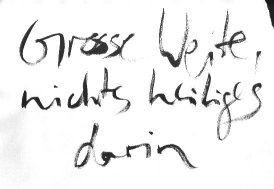 Grosse Weite,
nichts heiliges
darin